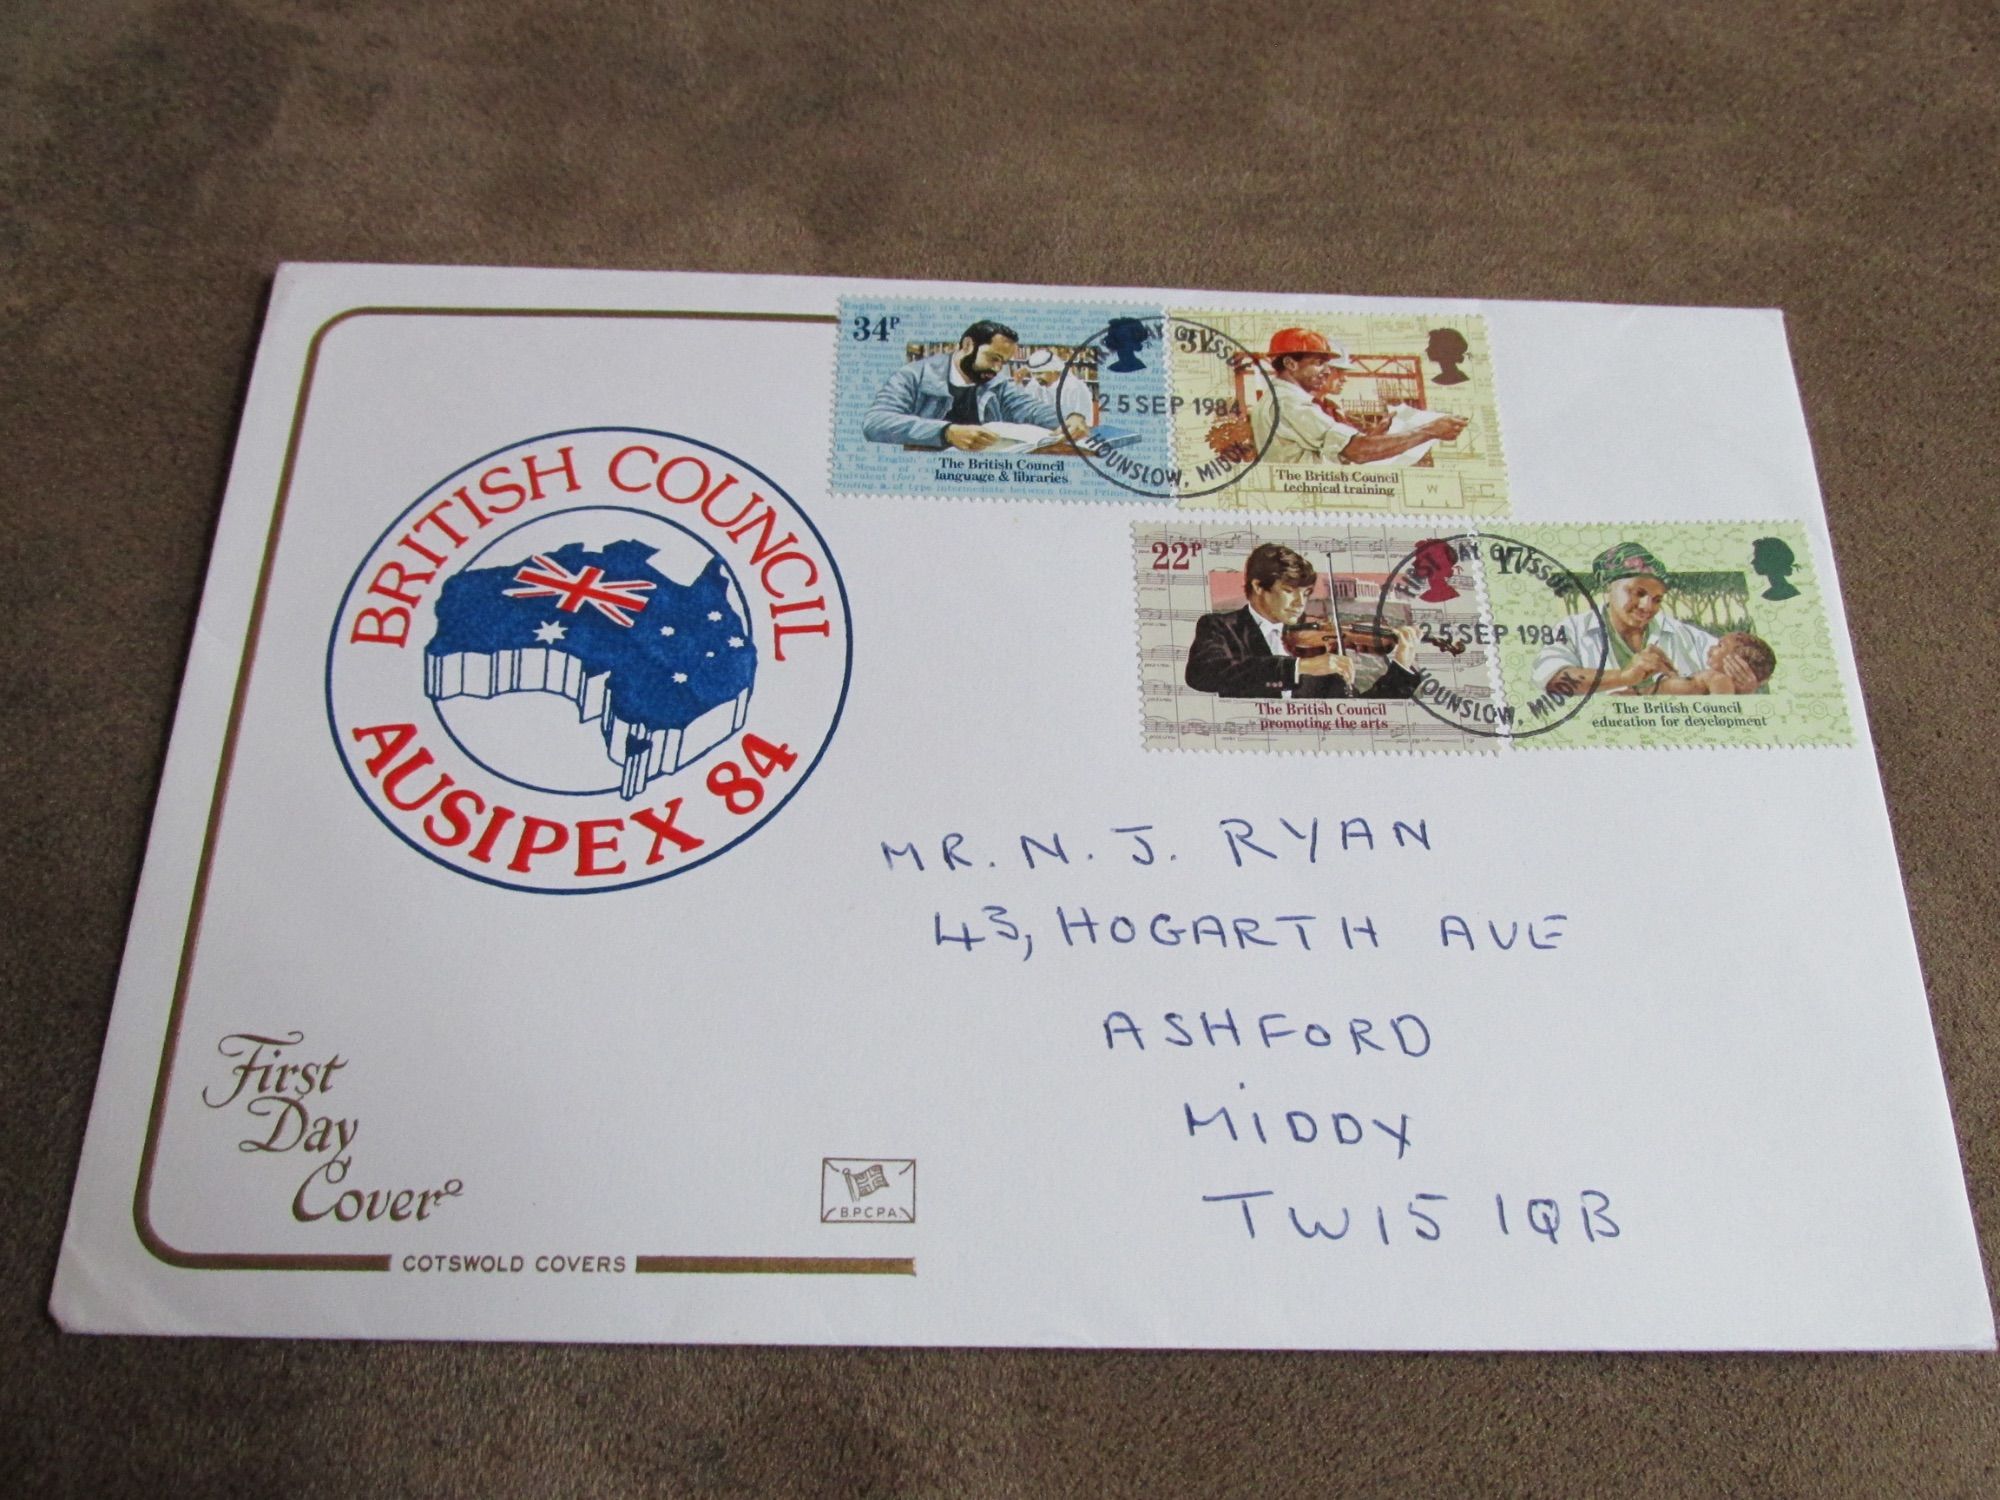 34P
The British Council
language & libraries
31P
The British Council
technical training
FIRST DAY OF ISSUE
25 SEP 1984
HOUNSLOW, MIDDX.
22P
The British Council
promoting the arts
17P
The British Council
education for development
FIRST DAY OF ISSUE
25 SEP 1984
HOUNSLOW, MIDDX.
BRITISH COUNCIL
AUSIPEX 84
MR. N. J. RYAN
43, HOGARTH AVE
ASHFORD
MIDDX
TW15 1QB
First
Day
Cover
B.P.C.P.A.
COTSWOLD COVERS